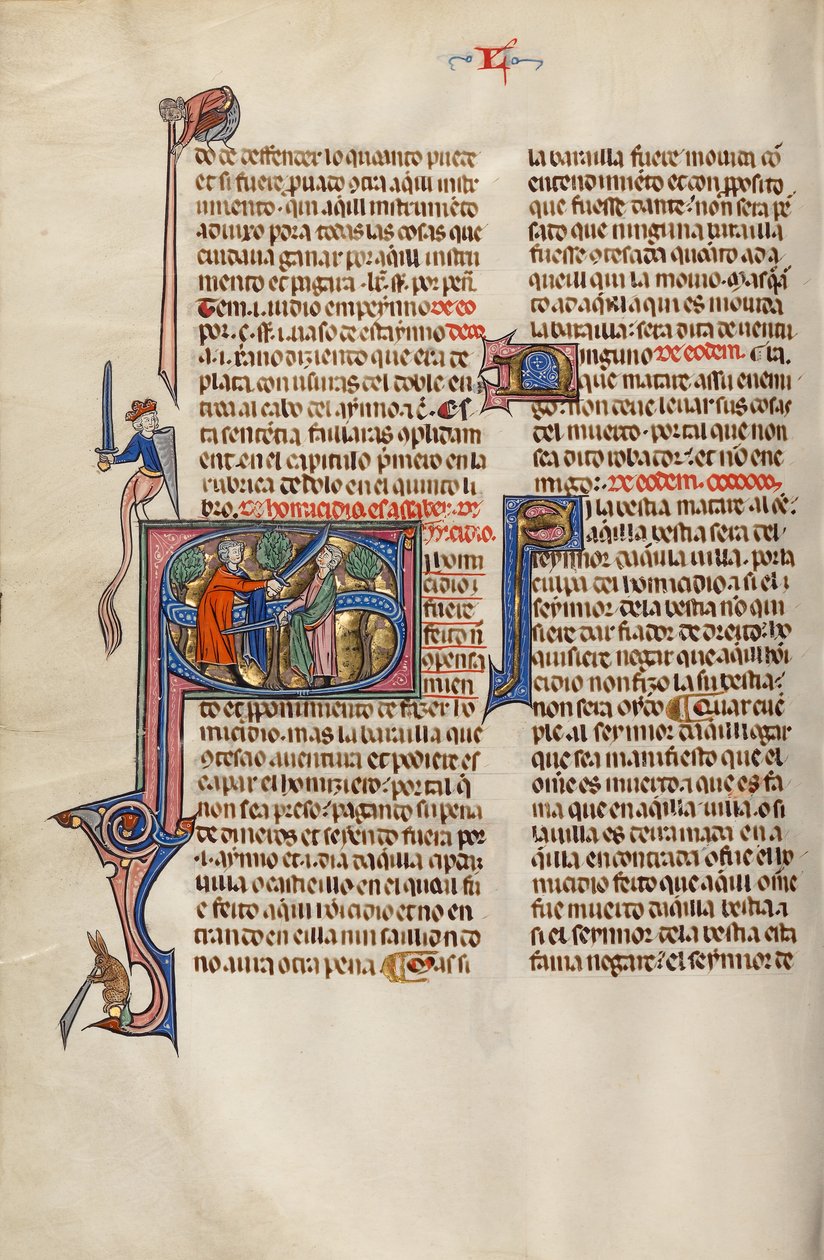 do de deffender lo quoanto puede
et si fuere prouado contra aqill instr
umento
aduixo pora todas las cosas que
cuidaua ganar por aqill instru
mento et pagara
Tem .i. iudio empeynno de eo
por .c. ss. i. uaso de estaynno dem
a .i. xpano diziento que era de
plata con usuras del doble en
treia al cabo del aynno
ta sentẽtia faillaras cplidam
ent en el capitulo pmero en la
rubrica de dolo en el quinto li
bro. De homicidio es a saber. De
homicidio.
i homi
cidio
fuere
feito nõ
cpensa
mien
to et pponimiento de fazer ho
micidio. mas la barailla que
ctesao auentura et podiere es
capar el homiziero. por tal q̃
non sea preso. pagando su pena
de dineros et seyendo fuera por
.i. aynno et .i. dia daqilla cipdat
uilla o castieillo en el quoal fu
e feito aqill hõicidio et no en
trando en eilla nin sailliondo
no aura otra pena Mas si
la barailla fuere mouida cõ
entendimiẽto et con pposito
que fuesse dante. non sera pẽ
sado que ninguna barailla
fuesse ctesada quoãto ad a
queill qui la mouio. Mas qũa
to ad aqill a qui es mouida
la barailla. sera dita de uentu
Ninguno De eodem. ra.
que matare a su enemi
go. non deue leuar sus cosas
del muerto. por tal que non
sea dito robador. et no ene
migo. De eodem.
Si la bestia matare al õe.
aqilla bestia sera del
seynnor daqilla uilla. por la
culpa del homicidio. a si el
seynnor de la bestia no qui
siere dar fiador de dreito. ho
quisiere negar que aqill hõi
cidio non fizo la su bestia.
non sera oydo Quar cue
ple al seynnor daqill logar
que sea manifiesto que el
ome es muerto. a que es fa
ma que en aqilla uilla. o si
la uilla es derramada en a
qilla encontrada o fue el ho
micidio feito que aqill ome
fue muerto daqilla bestia. a
si el seynnor de la bestia esta
fama negare. el seynnor de